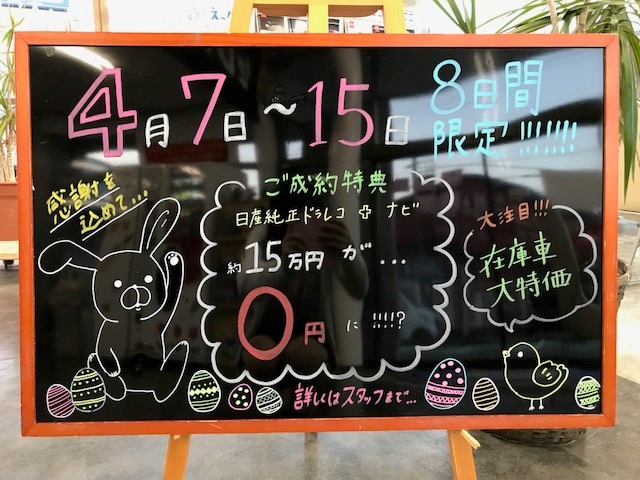 4月7日～15日
8日間
限定!!!!!!!
感謝を
込めて...
ご成約特典
日産純正ドラレコ＋ナビ
約15万円が...
0円に!!!!?
大注目!!!
在庫車
大特価
詳しくはスタッフまで...